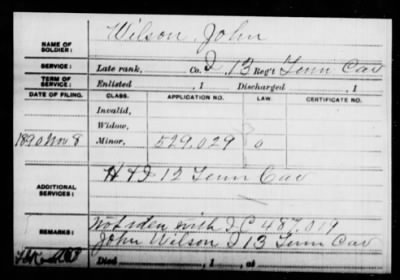 NAME OF SOLDIER: Wilson, John
SERVICE: Late rank, Co. I, 13 Reg't Tenn Cav
TERM OF SERVICE: Enlisted , 1 Discharged , 1
DATE OF FILING. CLASS. APPLICATION NO. LAW. CERTIFICATE NO.
Invalid,
Widow,
1890 Nov 8 Minor, 529,029
ADDITIONAL SERVICES: 12 Tenn Cav
REMARKS: Not iden with I C 487,019
John Wilson I 13 Tenn Cav
Died , 1 , at